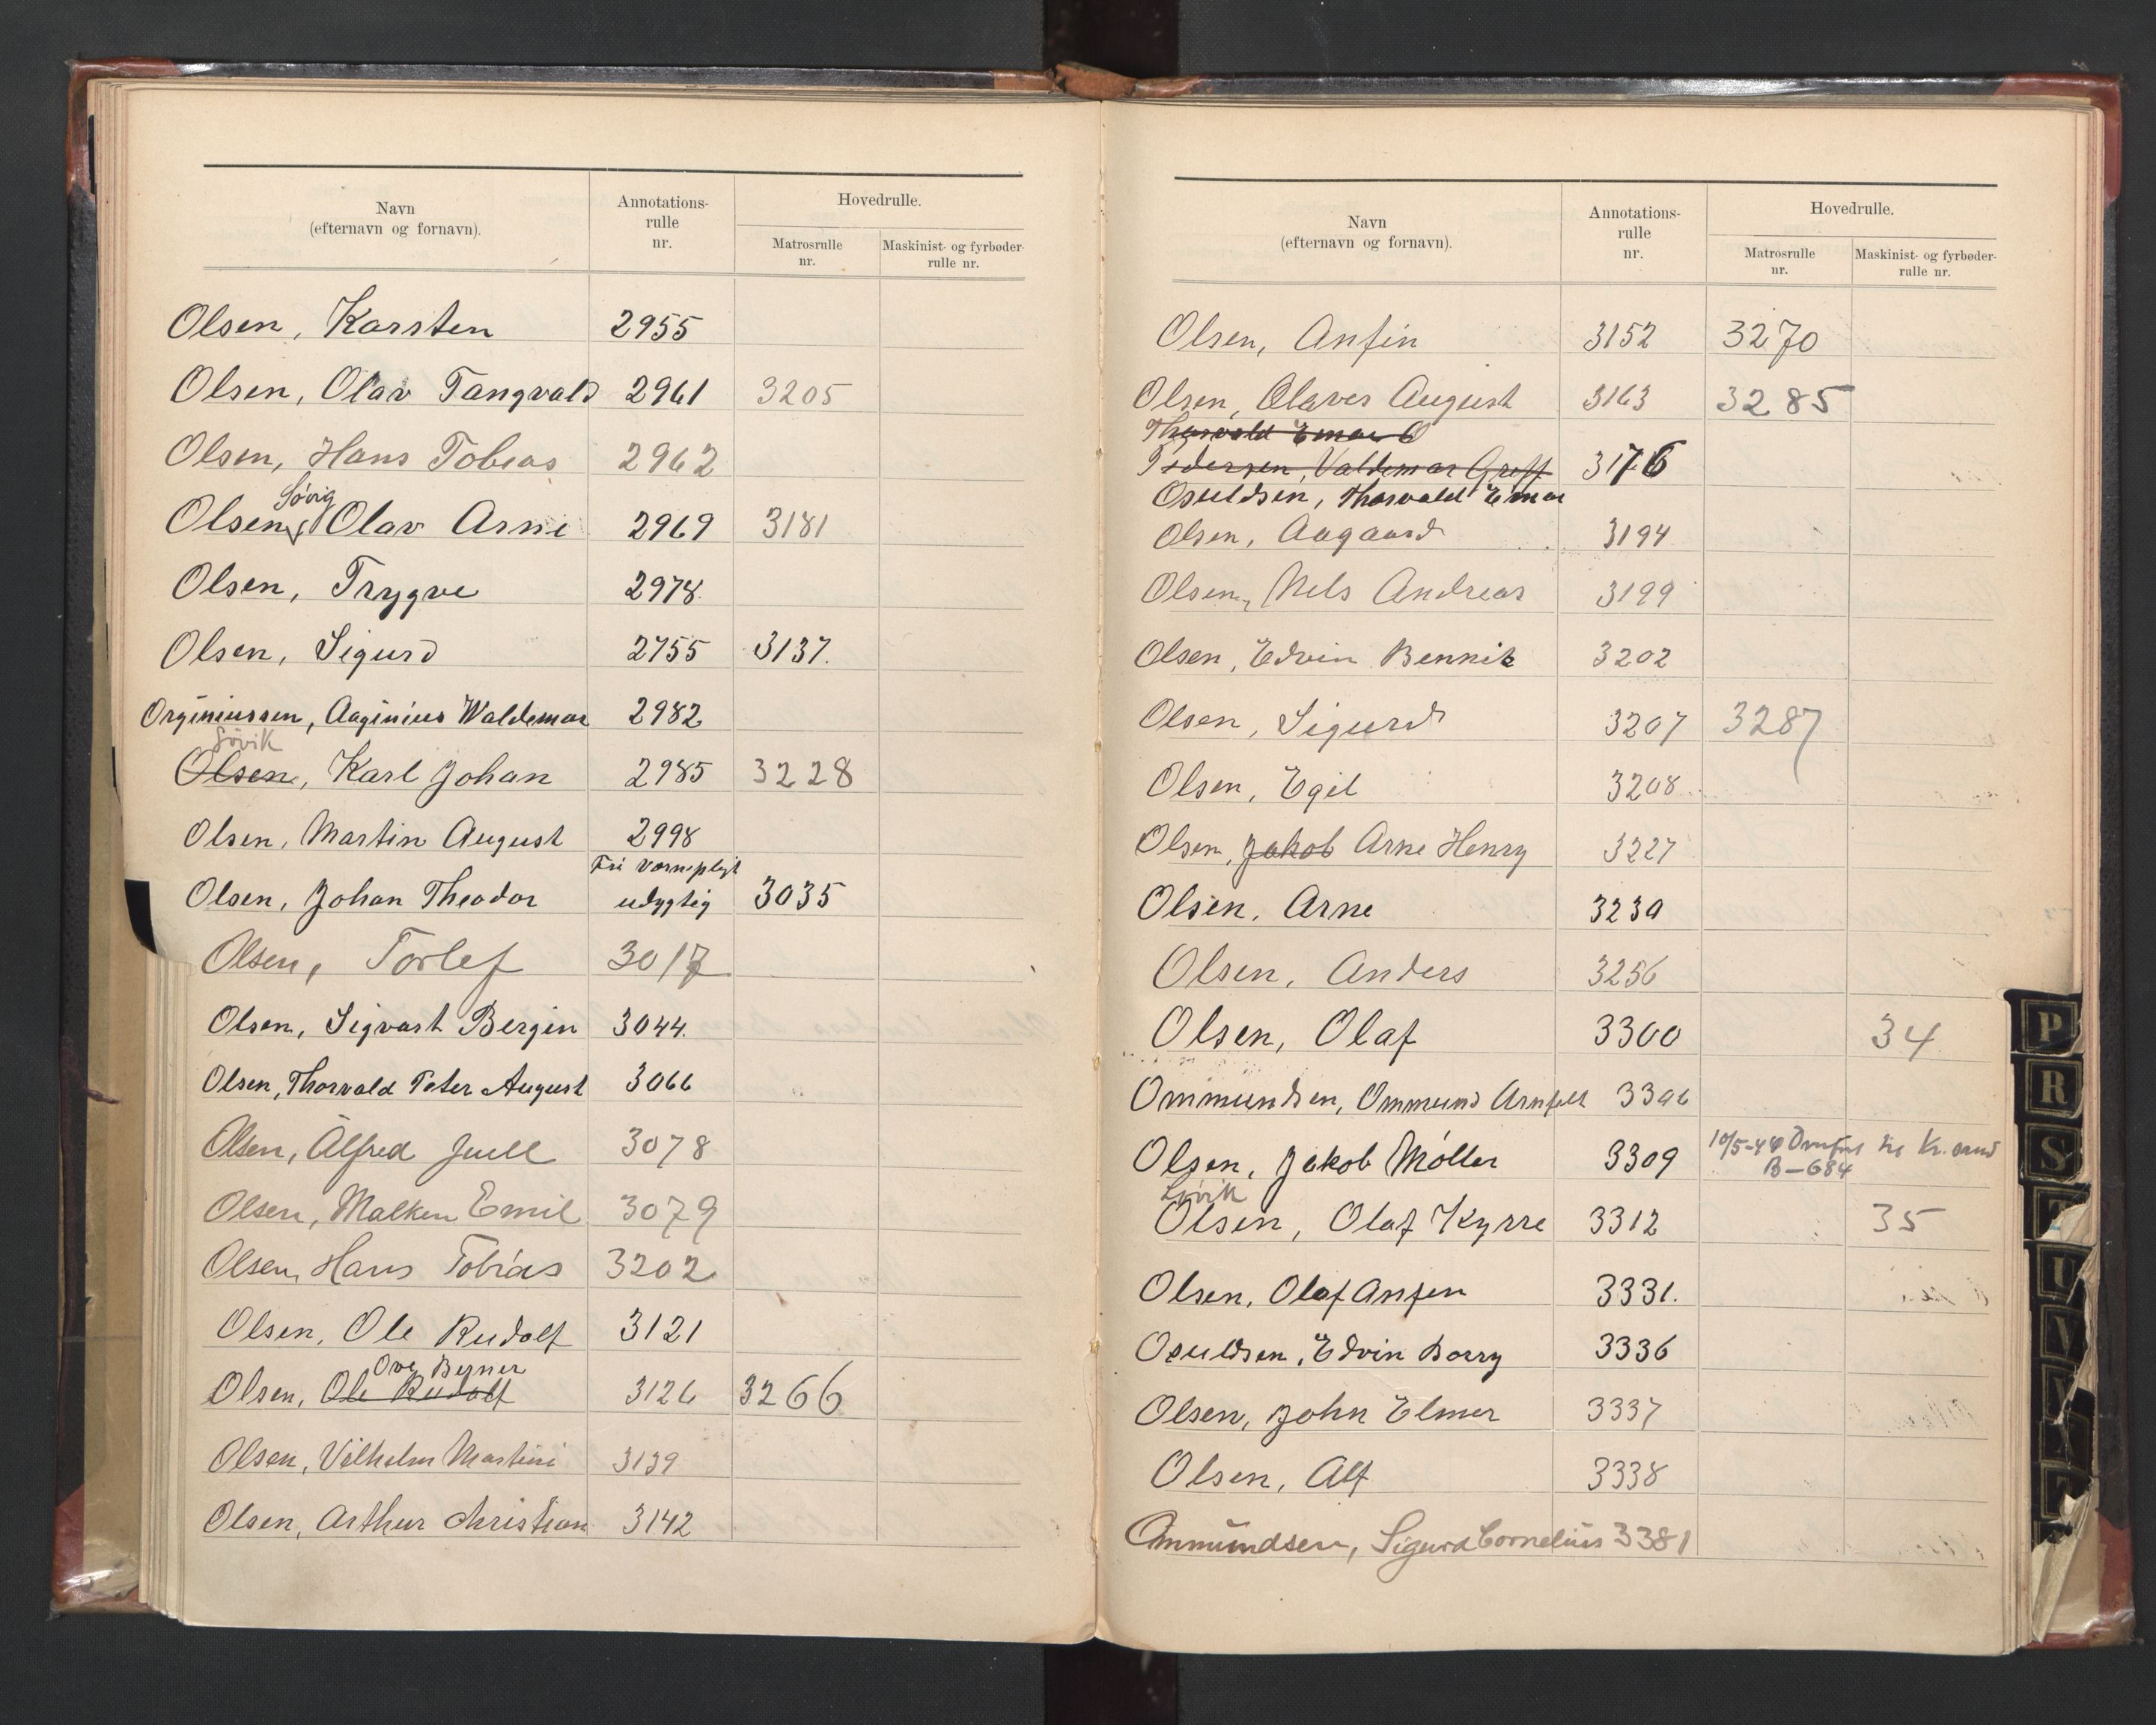 Navn
(efternavn og fornavn).
Annotations-
rulle
nr.
Hovedrulle.
Matrosrulle
nr.
Maskinist- og fyrbøder-
rulle nr.
Olsen, Karsten 2955
Olsen, Olav Tangvald 2961 3205
Olsen, Hans Tobias 2962
Søvig
Olsen, Olav Arne 2969 3181
Olsen, Trygve 2978.
Olsen, Sigurd 2755 3137.
Orginiussen, Aaginius Waldemar 2982
Søvik
Olsen, Karl Johan 2985 3228
Olsen, Martin August 2998
Fri vernepligt
Olsen, Johan Theodor udygtig 3035
Olsen, Torlef 3017
Olsen, Sigvart Bergin 3044.
Olsen, Thorvald Peter August 3066
Olsen, Alfred Juell 3078
Olsen, Malken Emil 3079
Olsen, Hans Tobias 3202
Olsen, Ole Rudolf 3121
Ove Berner
Olsen, Ole Rudolf 3126 3266
Olsen, Vilhelm Martini 3139
Olsen, Arthur Christian 3142
Navn
(efternavn og fornavn).
Annotations-
rulle
nr.
Hovedrulle.
Matrosrulle
nr.
Maskinist- og fyrbøder-
rulle nr.
Olsen, Anfin 3152 3270
Olsen, Olaves August 3163 3285
Thorvald Emar O
Pedersen, Valdemar Greff 3176
Osuldsen, Thorvald Emar
Olsen, Aagaard 3194
Olsen, Nels Andreas 3199
Olsen, Edvin Bennik 3202
Olsen, Sigurd 3207 3287
Olsen, Egil 3208
Olsen, Jakob Arne Henry 3227
Olsen, Arne 3230
Olsen, Anders 3256
Olsen, Olaf 3300 34
Ommundsen, Ommund Arnfelt 3306
Olsen, Jakob Møller 3309 10/5-44 til Kr.sand
B-684
Løvik
Olsen, Olaf Kyrre 3312 35
Olsen, Olaf Anfen 3331.
Osuldsen, Edvin Borry 3336
Olsen, John Elmer 3337
Olsen, Alf 3338
Ommundsen, Sigurd Cornelius 3381
P
R
S
T
U
V